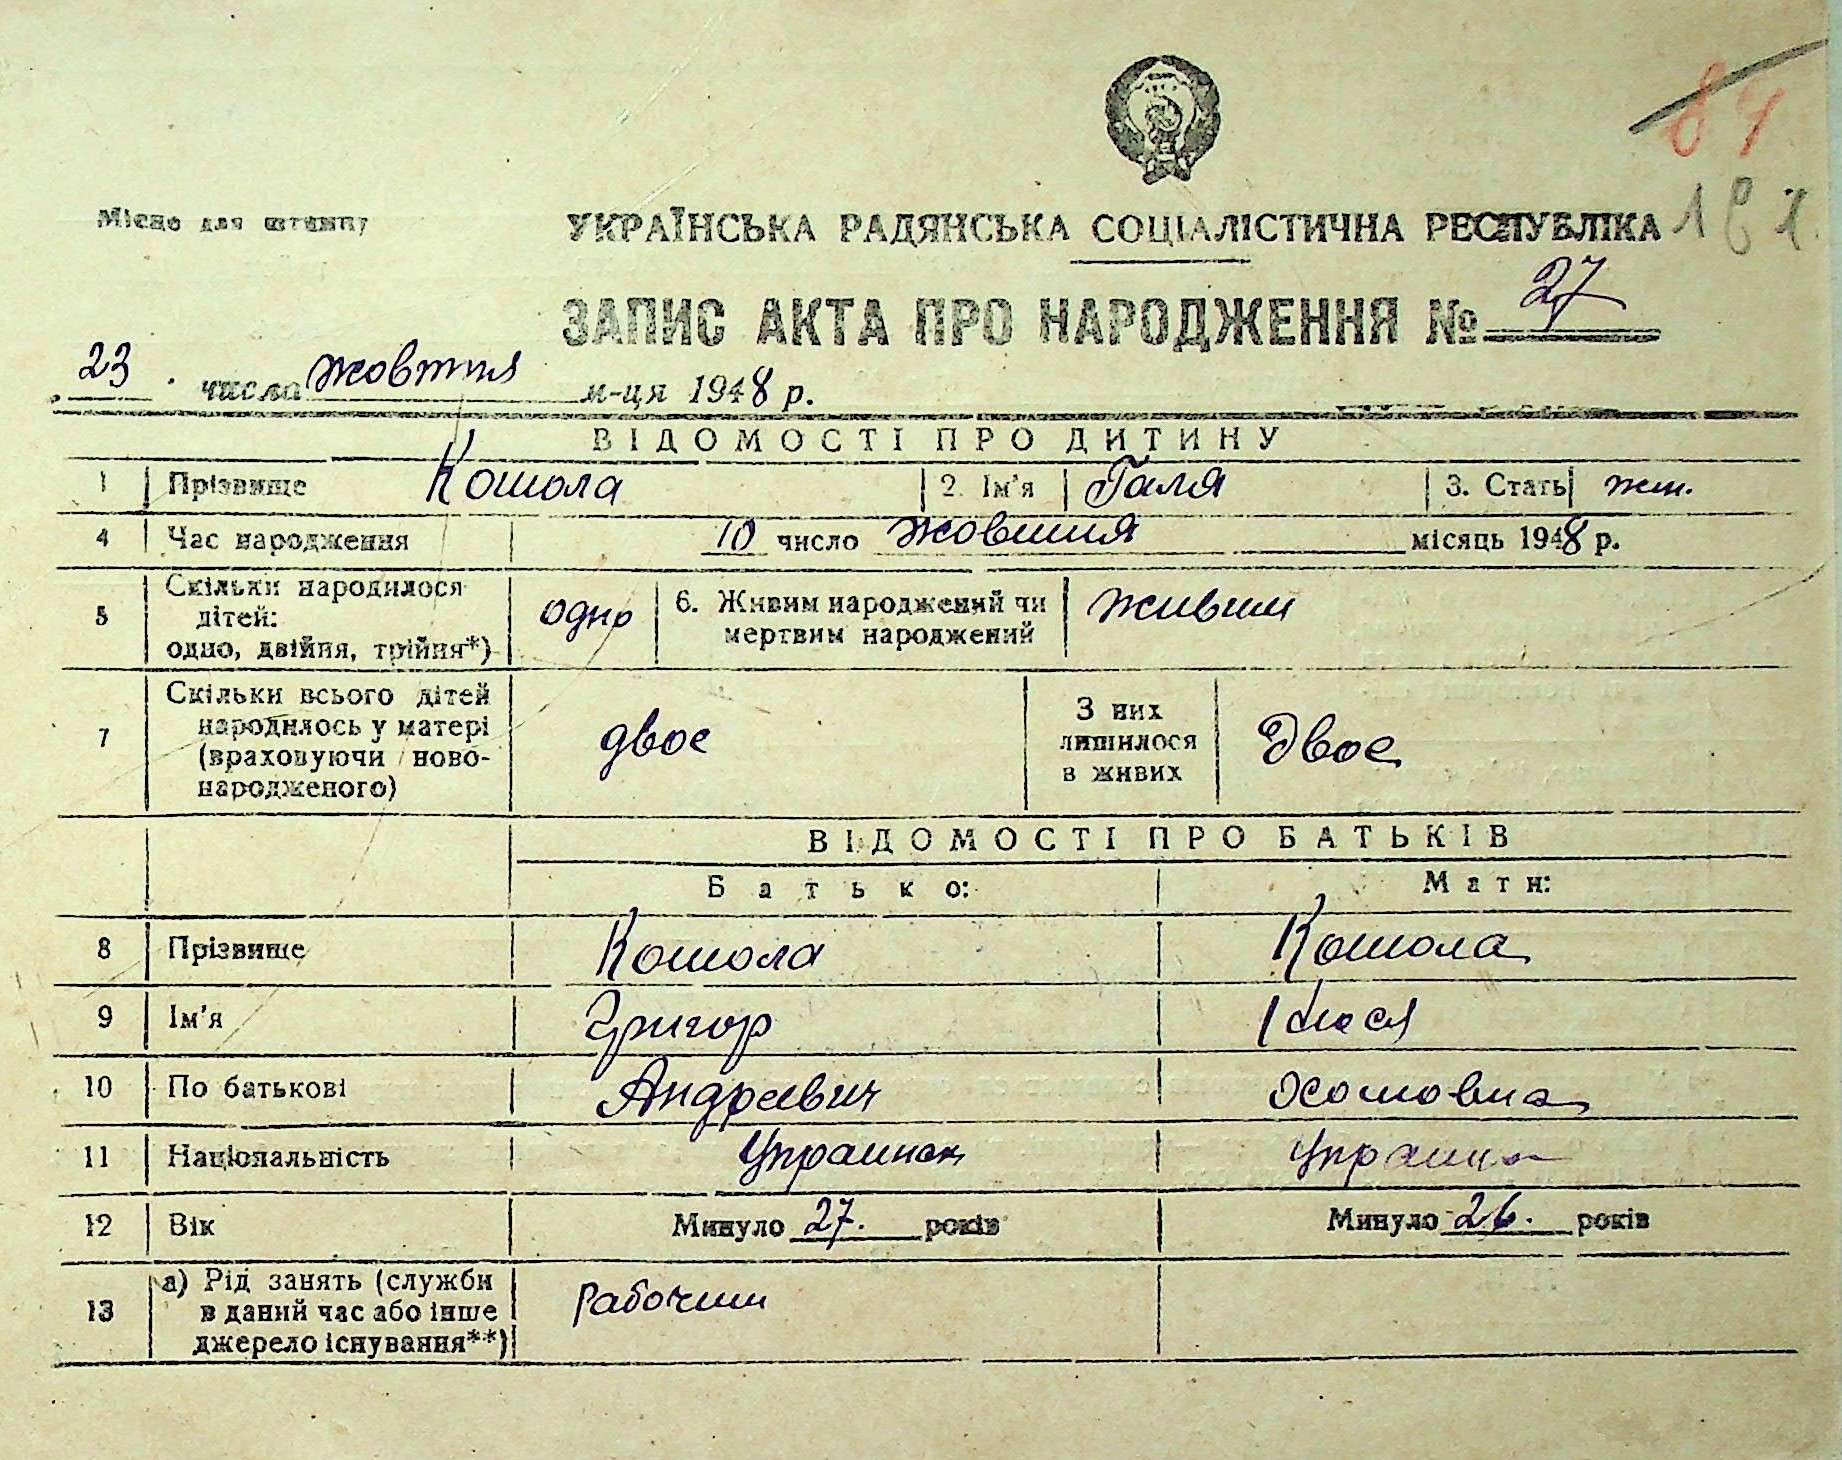 87
187.
Місце для штампу
УКРАЇНСЬКА РАДЯНСЬКА СОЦІАЛІСТИЧНА РЕСПУБЛІКА
ЗАПИС АКТА ПРО НАРОДЖЕННЯ № 27
23 . числа жовтня м-ця 1948 р.
ВІДОМОСТІ ПРО ДИТИНУ
1 Прізвище Кошола 2. Ім'я Галя 3. Стать жін.
4 Час народження 10 число жовтня місяць 1948 р.
5 Скільки народилося дітей: одно, двійня, трійня*) одно 6. Живим народжений чи мертвим народжений живим
7 Скільки всього дітей народилось у матері (враховуючи ново-народженого) двоє З них лишилося в живих Двоє
ВІДОМОСТІ ПРО БАТЬКІВ
Батько: Мати:
8 Прізвище Кошола Кошола
9 Ім'я Григор
10 По батькові Андревич Хомовна
11 Національність Украинец Украинка
12 Вік Минуло 27. років Минуло 26. років
13 а) Рід занять (служби в даний час або інше джерело існування**) рабочий